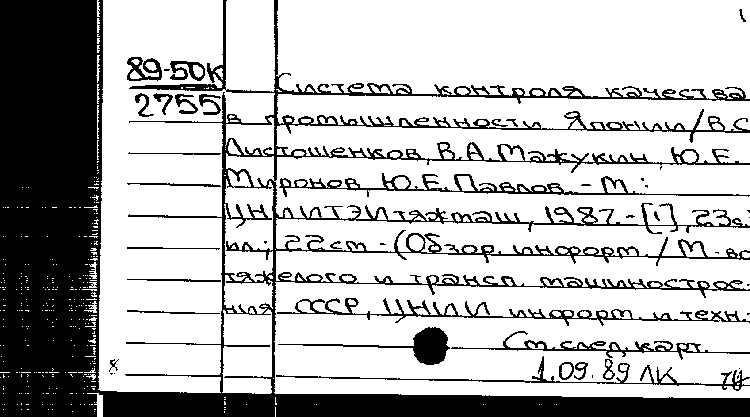 89-50К
2755
Система контроля качества
в промышленности Японии/В.С.
Листошенков, В.А. Мажукин, Ю.Е.
Миронов, Ю.Е. Павлов. - М.:
ЦНИИТЭИтяжмаш, 1987.-[1], 23с.
ил.; 22см -(Обзор. информ. / М-во
тяжелого и трансп. машинострое-
ния СССР, ЦНИИ информ. и техн.-
См. след. карт.
8 1.09.89 ЛК